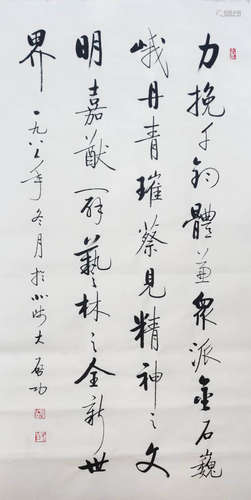 力挽千鈞體兼眾派金石巍
峨丹青璀粲見精神之文
明嘉猷一辟藝林之全新世
界 一九八三年冬月於北師大 啟功